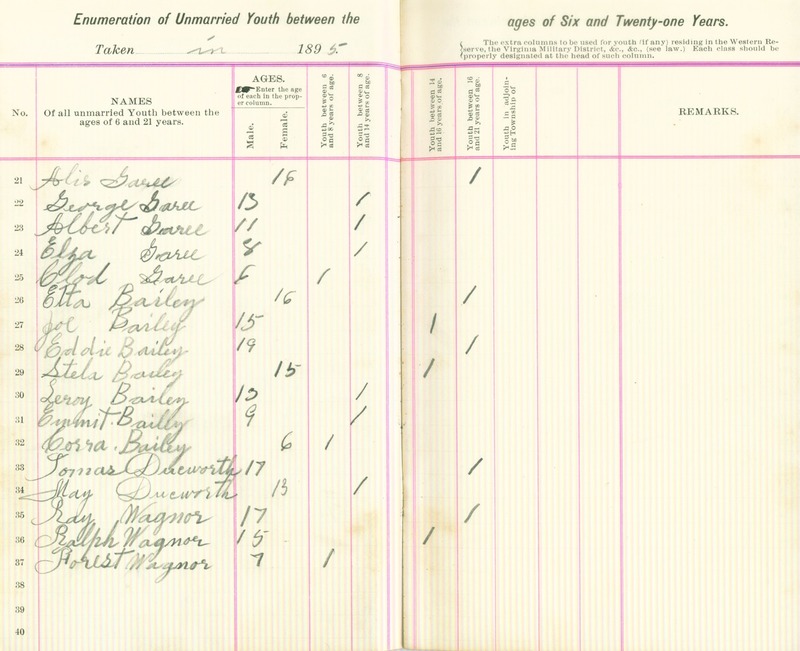 Enumeration of Unmarried Youth between the ages of Six and Twenty-one Years.
Taken in 1895.
The extra columns to be used for youth (if any) residing in the Western Re-
serve, the Virginia Military District, &c., &c., (see law.) Each class should be
properly designated at the head of such column.
No.
NAMES
Of all unmarried Youth between the
ages of 6 and 21 years.
AGES.
Enter the age
of each in the prop-
er column.
Male.
Female.
Youth between 6
and 8 years of age.
Youth between 8
and 14 years of age.
Youth between 14
and 16 years of age.
Youth between 16
and 21 years of age.
Youth in adjoin-
ing Township of
REMARKS.
21 Alis Garee 18 1
22 George Garee 13 1
23 Albert Garee 11 1
24 Elza Garee 8 1
25 Clod Garee 6 1
26 Etta Bailey 16 1
27 Joe Bailey 15 1
28 Eddie Bailey 19 1
29 Stela Bailey 15 1
30 Leroy Bailey 13 1
31 Emmit Bailey 9 1
32 Corra Bailey 6 1
33 Tomas Ducworth 17 1
34 May Ducworth 13 1
35 Ray Wagnor 17 1
36 Ralph Wagnor 15 1
37 Forest Wagnor 7 1
38
39
40